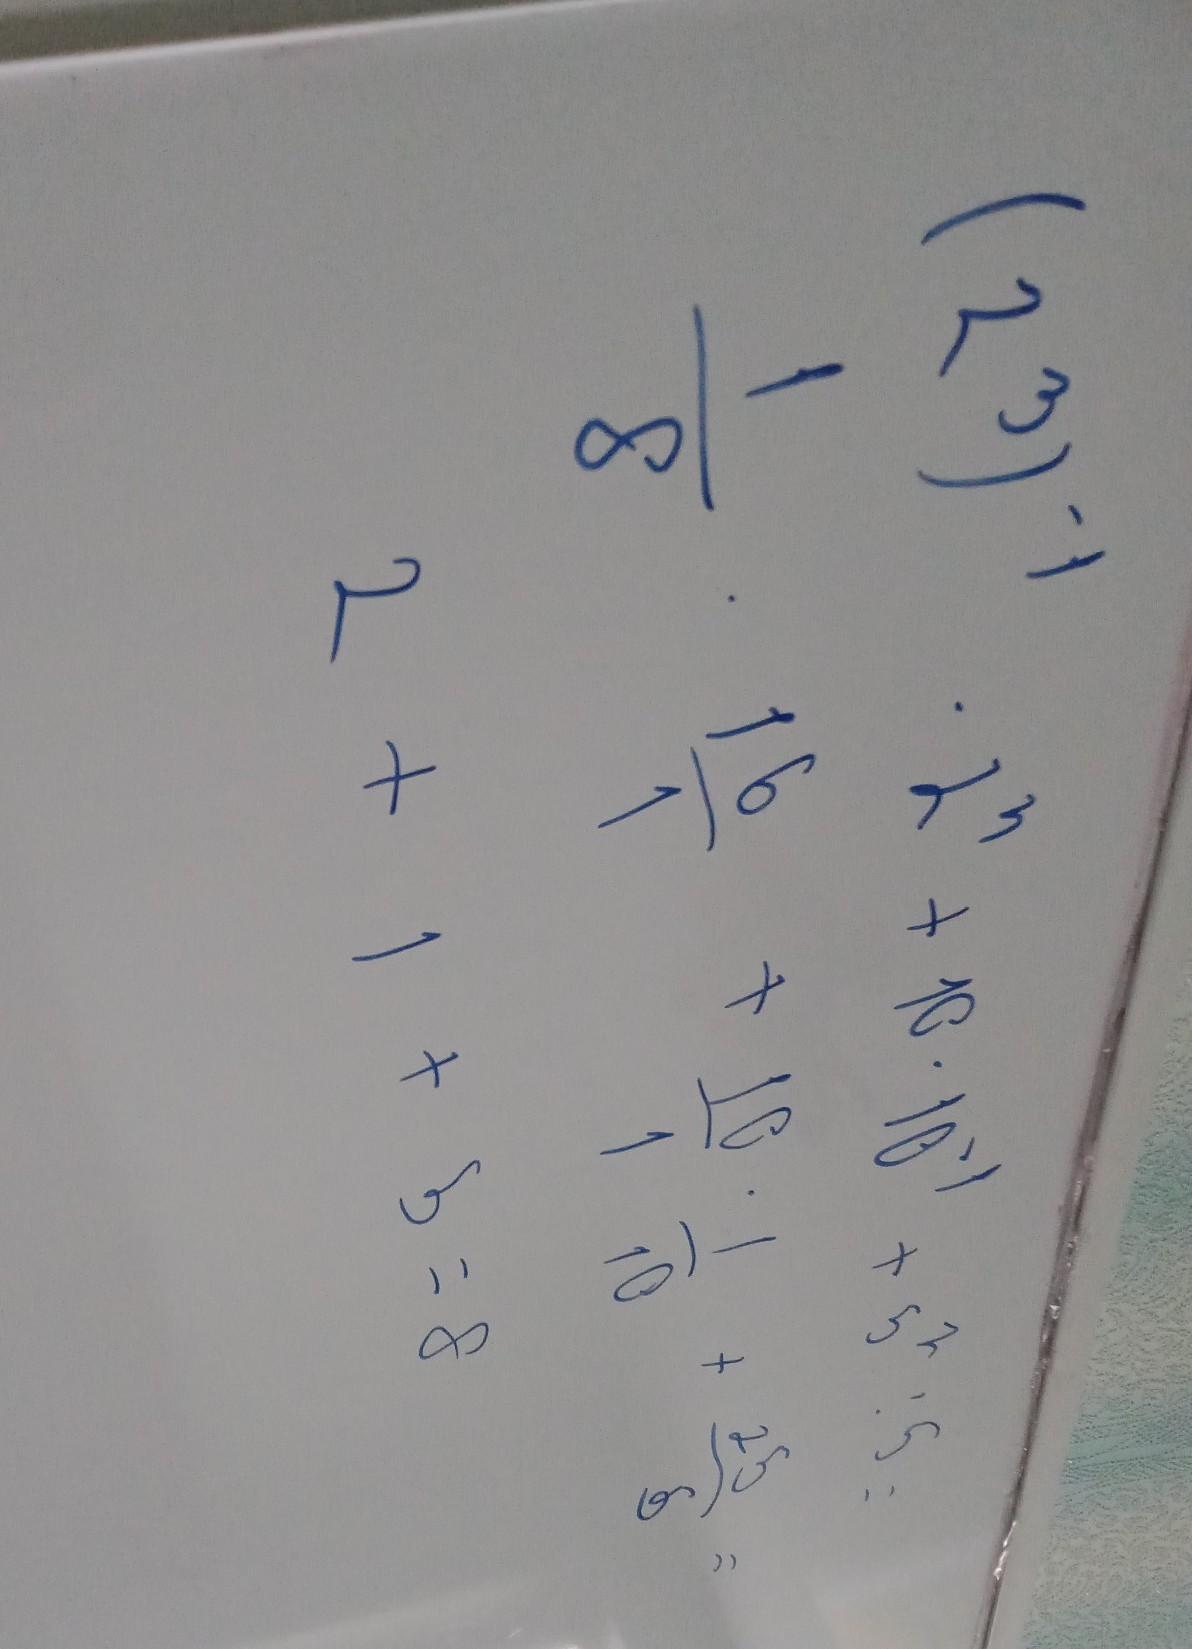 (2³)⁻¹ · 2⁴ + 10 · 10⁻¹ + 5² : 5 =
1/8 · 16/1 + 10/1 · 1/10 + 25/5 =
2 + 1 + 5 = 8